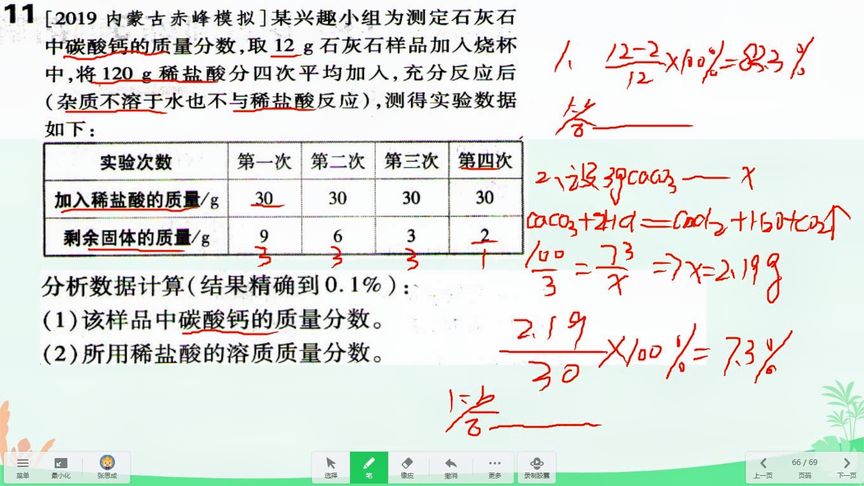 11 [2019 内蒙古赤峰模拟]某兴趣小组为测定石灰石
中碳酸钙的质量分数,取 12 g 石灰石样品加入烧杯
中,将 120 g 稀盐酸分四次平均加入,充分反应后
(杂质不溶于水也不与稀盐酸反应),测得实验数据
如下:
实验次数 第一次 第二次 第三次 第四次
加入稀盐酸的质量/g 30 30 30 30
剩余固体的质量/g 9 6 3 2
3 3 3 1
分析数据计算(结果精确到 0.1%):
(1)该样品中碳酸钙的质量分数。
(2)所用稀盐酸的溶质质量分数。
1、 12-2/12 ×100%=83.3%
2、设3gCaCO3 — x
CaCO3+2HCl=CaCl2+H2O+CO2↑
100/3 = 73/x => x=2.19g
2.19/30 ×100%=7.3%
菜单 最小化 张思成 选择 笔 橡皮 撤消 更多 录制胶囊 上一页 66 / 69 页码 下一页